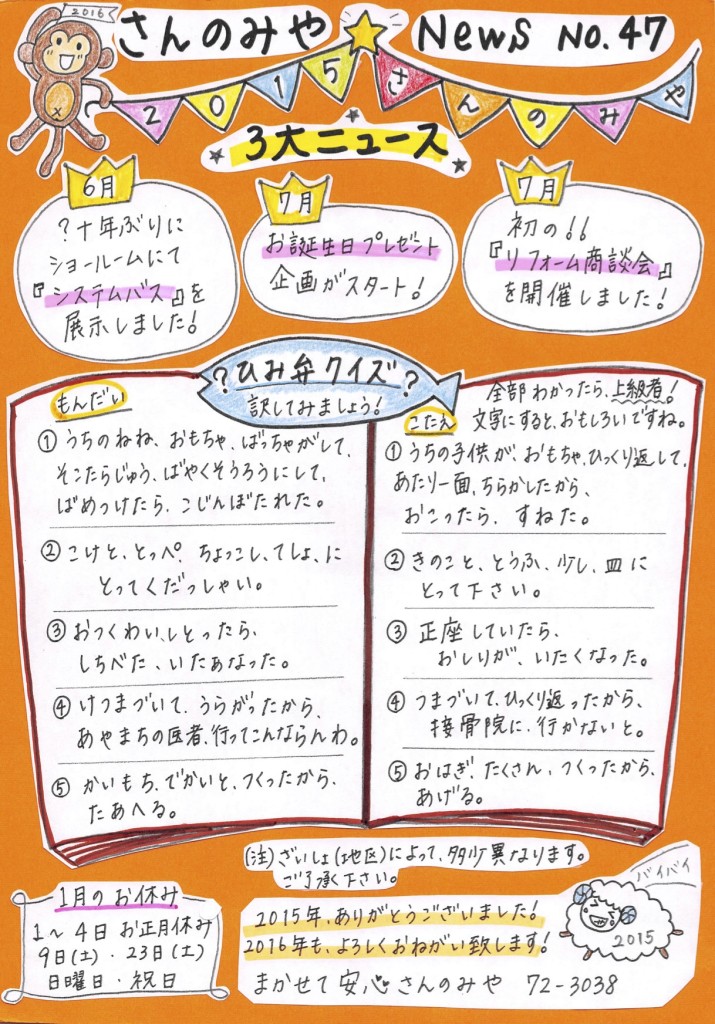 2016
さんのみや News No.47
2015さんのみや
3大ニュース
6月
?十年ぶりに
ショールームにて
『システムバス』を
展示しました!
7月
お誕生日プレゼント
企画がスタート!
7月
初の!!
『リフォーム商談会』
を開催しました!
?ひみ弁クイズ?
訳してみましょう!
もんだい
①うちのねね、おもちゃ、ばっちゃがして、
そこたらじゅう、ばやくそうろうにして、
ばめっけたら、こじんぼたれた。
②こけと、とっぺ、ちょっこし、てしょ、に
とってくだっしゃい。
③おつくわい、しとったら、
しちべた、いたぁなった。
④けつまづいて、うらがったから、
あやまちの医者、行ってこんならんわ。
⑤かいもち、でかいと、つくったから、
たあへる。
全部わかったら、上級者!
文字にすると、おもしろいですね。
こたえ
①うちの子供が、おもちゃ、ひっくり返して、
あたり一面、ちらかしたから、
おこったら、すねた。
②きのこと、とうふ、少し、皿に
とって下さい。
③正座していたら、
おしりが、いたくなった。
④つまづいて、ひっくり返ったから、
接骨院に、行かないと。
⑤おはぎ、たくさん、つくったから、
あげる。
(注)ざいしょ(地区)によって、多少異なります。
ご了承下さい。
1月のお休み
1~4日 お正月休み
9日(土)・23日(土)
日曜日・祝日
2015年、ありがとうございました!
2016年も、よろしくおねがい致します!
まかせて安心さんのみや 72-3038
バイバイ
2015